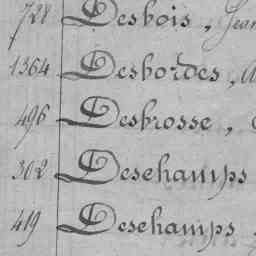 728 Desbois, Jean
1364 Desbordes, A
496 Desbrosse,
302 Deschamps
419 Deschamps,